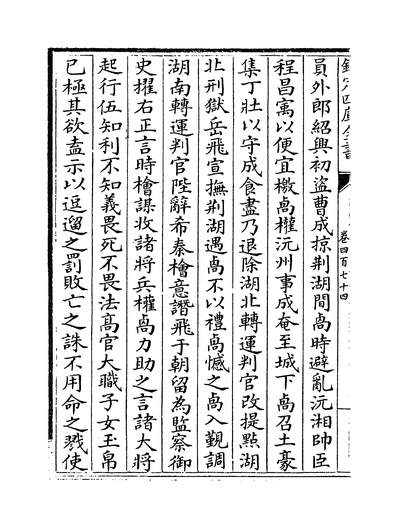 欽定四庫全書
卷四百七十四
員外郎紹興初盜曹成掠荆湖間卨時避亂沅湘帥臣
程昌寓以便宜檄卨權沅州事成奄至城下卨召土豪
集丁壯以守成食盡乃退除湖北轉運判官改提點湖
北刑獄岳飛宣撫荆湖遇卨不以禮卨憾之卨入覲調
湖南轉運判官陛辭希秦檜意譖飛于朝留為監察御
史擢右正言時檜謀收諸將兵權卨力助之言諸大將
起行伍知利不知義畏死不畏法髙官大職子女玉帛
已極其欲盍示以逗遛之罰敗亡之誅不用命之戮使